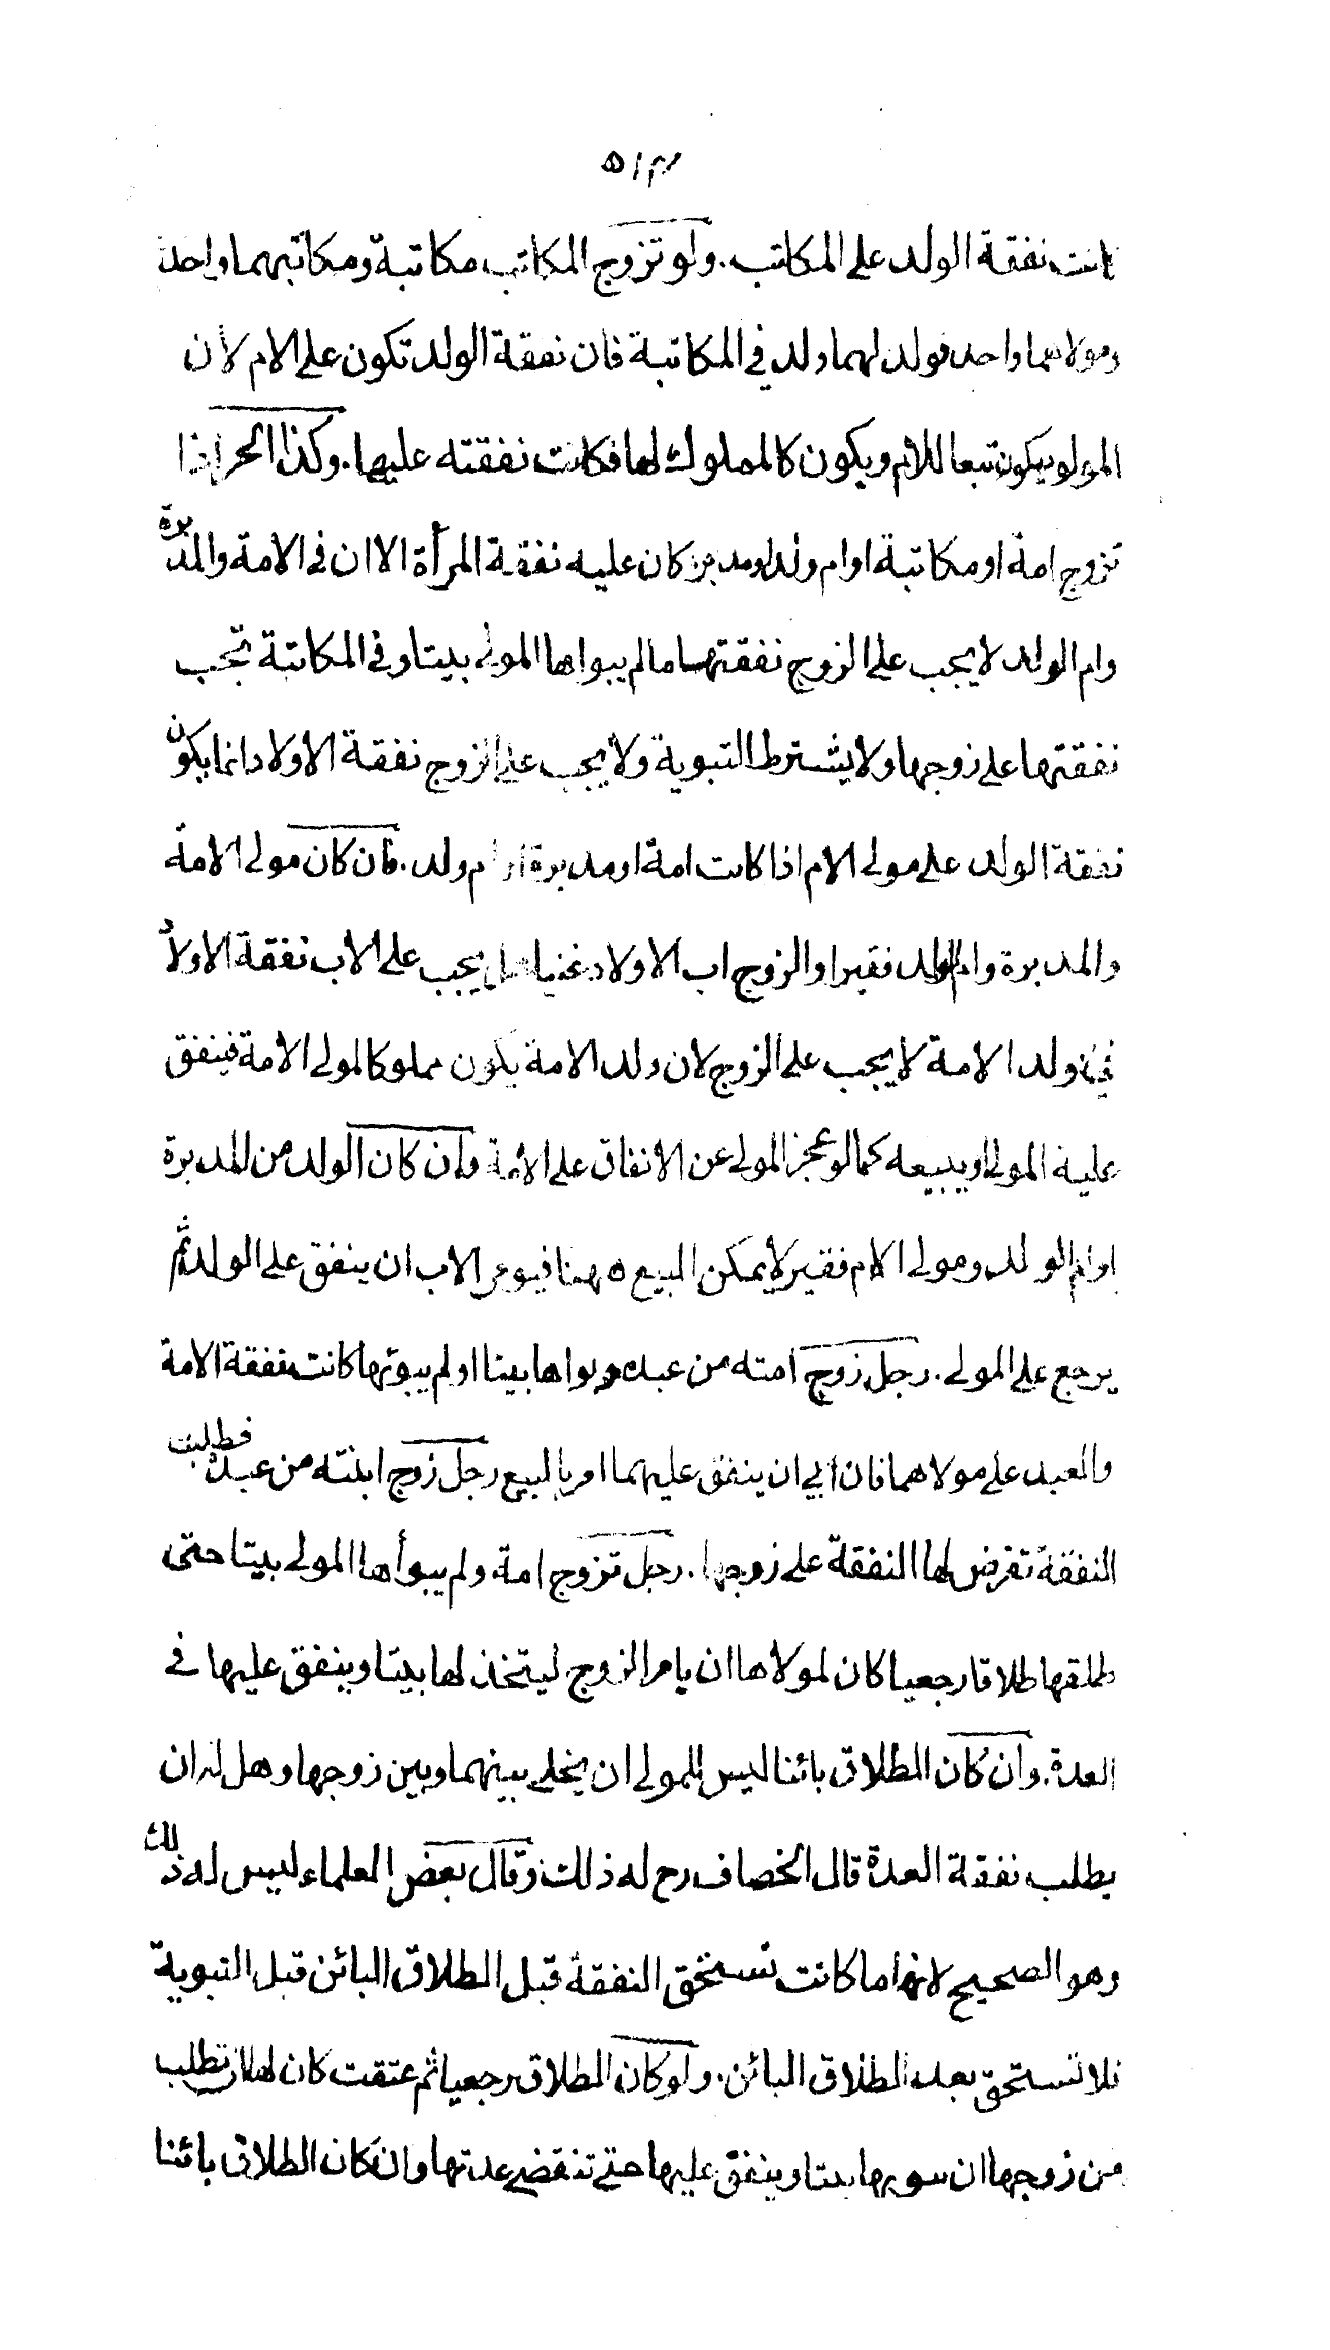 ٥١٣
كانت نفقة الولد على المكاتب. ولو تزوج المكاتب مكاتبة ومكاتبهما واحد
ومولاهما واحد فولد لهما ولد في المكاتبة فان نفقة الولد تكون على الام لأن
المولود يكون تبعا للام ويكون كالمملوك لها فكانت نفقته عليها. وكذا الحر اذا
تزوج امة او مكاتبة او ام ولد او مدبرة كان عليه نفقة المرأة الا ان في الامة والمدبرة
وام الولد لا يجب على الزوج نفقتهما ما لم يبواها المولى بيتا وفي المكاتبة تجب
نفقتها على زوجها ولا يشترط التبوية ولا يجب على الزوج نفقة الاولاد انما يكون
نفقة الولد على مولى الام اذا كانت امة او مدبرة او ام ولد. فان كان مولى الامة
والمدبرة وام الولد فقيرا والزوج اب الاولاد غنيا هل يجب على الاب نفقة الاولاد
في ولد الامة لا يجب على الزوج لان ولد الامة يكون مملوكا لمولى الامة فينفق
عليه المولى او يبيعه كما لو عجز المولى عن الانفاق على الأمة وان كان الولد من المدبرة
او ام الولد ومولى الام فقير لا يمكن البيع ههنا فيومر الاب ان ينفق على الولد ثم
يرجع على المولى. رجل زوج امته من عبده وبواها بيتا او لم يبوئها كانت نفقة الامة
والعبد على مولاهما فان ابى ان ينفق عليهما امر بالبيع رجل زوج ابنته من عبده فطلبت
النفقة تفرض لها النفقة على زوجها. رجل تزوج امة ولم يبوأها المولى بيتا حتى
طلقها طلاقا رجعيا كان لمولاها ان يامر الزوج ليتخذ لها بيتا وينفق عليها في
العدة. وان كان الطلاق بائنا ليس للمولى ان يخلى بينهما وبين زوجها وهل له ان
يطلب نفقة العدة قال الخصاف رح له ذلك وقال بعض العلماء ليس له ذلك
وهو الصحيح لانها ما كانت تستحق النفقة قبل الطلاق البائن قبل التبوية
فلا تستحق بعد الطلاق البائن. ولو كان الطلاق رجعيا ثم عتقت كان لها ان تطلب
من زوجها ان يبويها بيتا وينفق عليها حتى تنقضي عدتها وان كان الطلاق بائنا